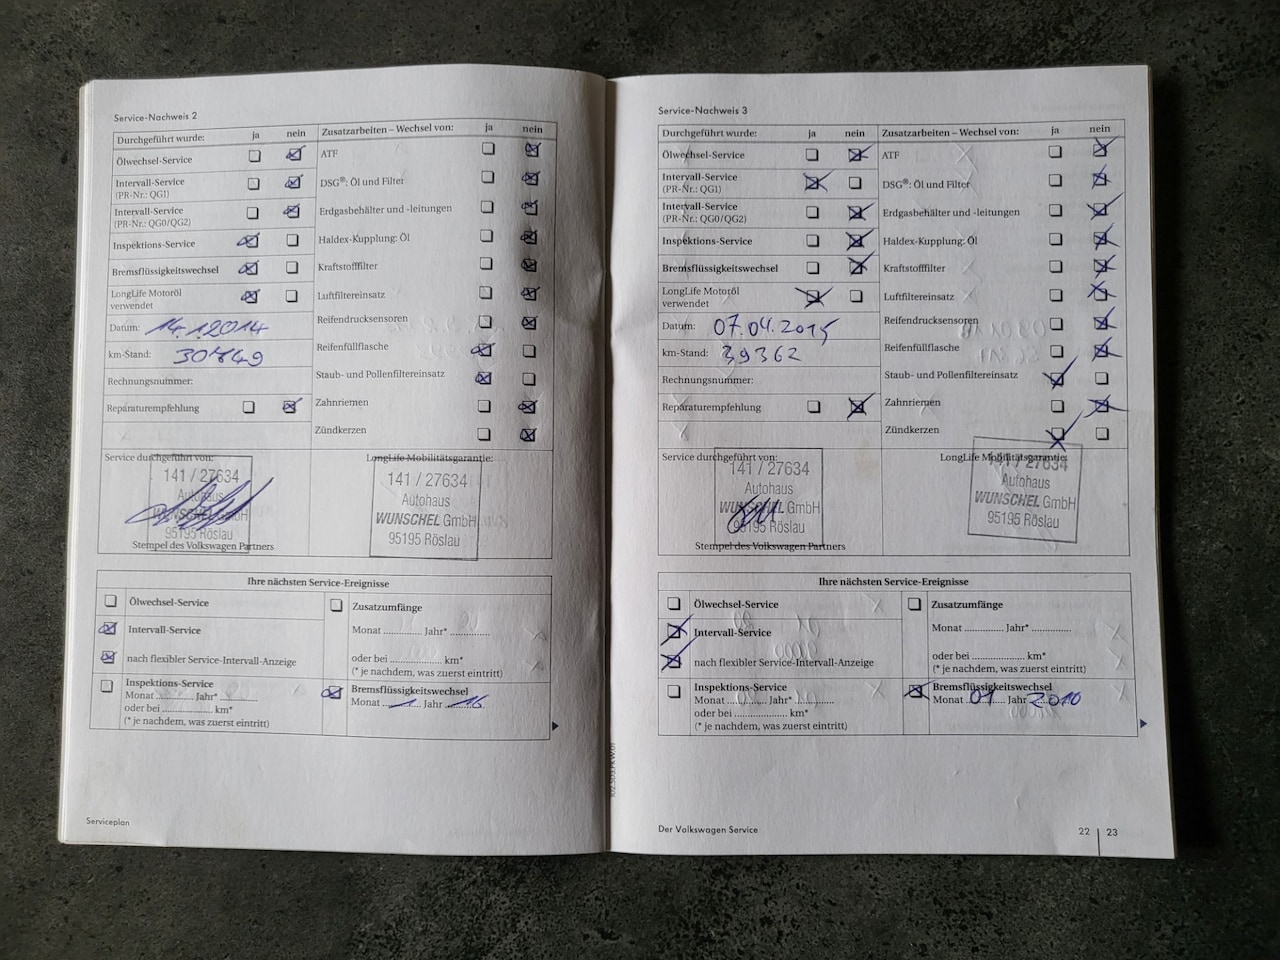 Service-Nachweis 2
Durchgeführt wurde: ja nein
Ölwechsel-Service
Intervall-Service
(PR-Nr.: QG1)
Intervall-Service
(PR-Nr.: QG0/QG2)
Inspektions-Service
Bremsflüssigkeitswechsel
LongLife Motoröl
verwendet
Datum: 14.1.2014
km-Stand: 30849
Rechnungsnummer:
Reparaturempfehlung
Zusatzarbeiten – Wechsel von: ja nein
ATF
DSG®: Öl und Filter
Erdgasbehälter und -leitungen
Haldex-Kupplung: Öl
Kraftstofffilter
Luftfiltereinsatz
Reifendrucksensoren
Reifenfüllflasche
Staub- und Pollenfiltereinsatz
Zahnriemen
Zündkerzen
Service durchgeführt von:
141 / 27634
Autohaus
WUNSCHEL GmbH
95195 Röslau
Stempel des Volkswagen Partners
LongLife Mobilitätsgarantie:
141 / 27634
Autohaus
WUNSCHEL GmbH
95195 Röslau
Ihre nächsten Service-Ereignisse
Ölwechsel-Service
Intervall-Service
nach flexibler Service-Intervall-Anzeige
Inspektions-Service
Monat .......... Jahr* ..........
oder bei .................... km*
(* je nachdem, was zuerst eintritt)
Zusatzumfänge
Monat ............ Jahr* .............
oder bei .................... km*
(* je nachdem, was zuerst eintritt)
Bremsflüssigkeitswechsel
Monat 1 Jahr 16
Serviceplan
Service-Nachweis 3
Durchgeführt wurde: ja nein
Ölwechsel-Service
Intervall-Service
(PR-Nr.: QG1)
Intervall-Service
(PR-Nr.: QG0/QG2)
Inspektions-Service
Bremsflüssigkeitswechsel
LongLife Motoröl
verwendet
Datum: 07.04.2015
km-Stand: 39362
Rechnungsnummer:
Reparaturempfehlung
Zusatzarbeiten – Wechsel von: ja nein
ATF
DSG®: Öl und Filter
Erdgasbehälter und -leitungen
Haldex-Kupplung: Öl
Kraftstofffilter
Luftfiltereinsatz
Reifendrucksensoren
Reifenfüllflasche
Staub- und Pollenfiltereinsatz
Zahnriemen
Zündkerzen
Service durchgeführt von:
141 / 27634
Autohaus
WUNSCHEL GmbH
95195 Röslau
Stempel des Volkswagen Partners
LongLife Mobilitätsgarantie:
141 / 27634
Autohaus
WUNSCHEL GmbH
95195 Röslau
Ihre nächsten Service-Ereignisse
Ölwechsel-Service
Intervall-Service
nach flexibler Service-Intervall-Anzeige
Inspektions-Service
Monat .......... Jahr* ..........
oder bei .................... km*
(* je nachdem, was zuerst eintritt)
Zusatzumfänge
Monat ............ Jahr* .............
oder bei .................... km*
(* je nachdem, was zuerst eintritt)
Bremsflüssigkeitswechsel
Monat 01 Jahr 2010
Der Volkswagen Service
22 | 23